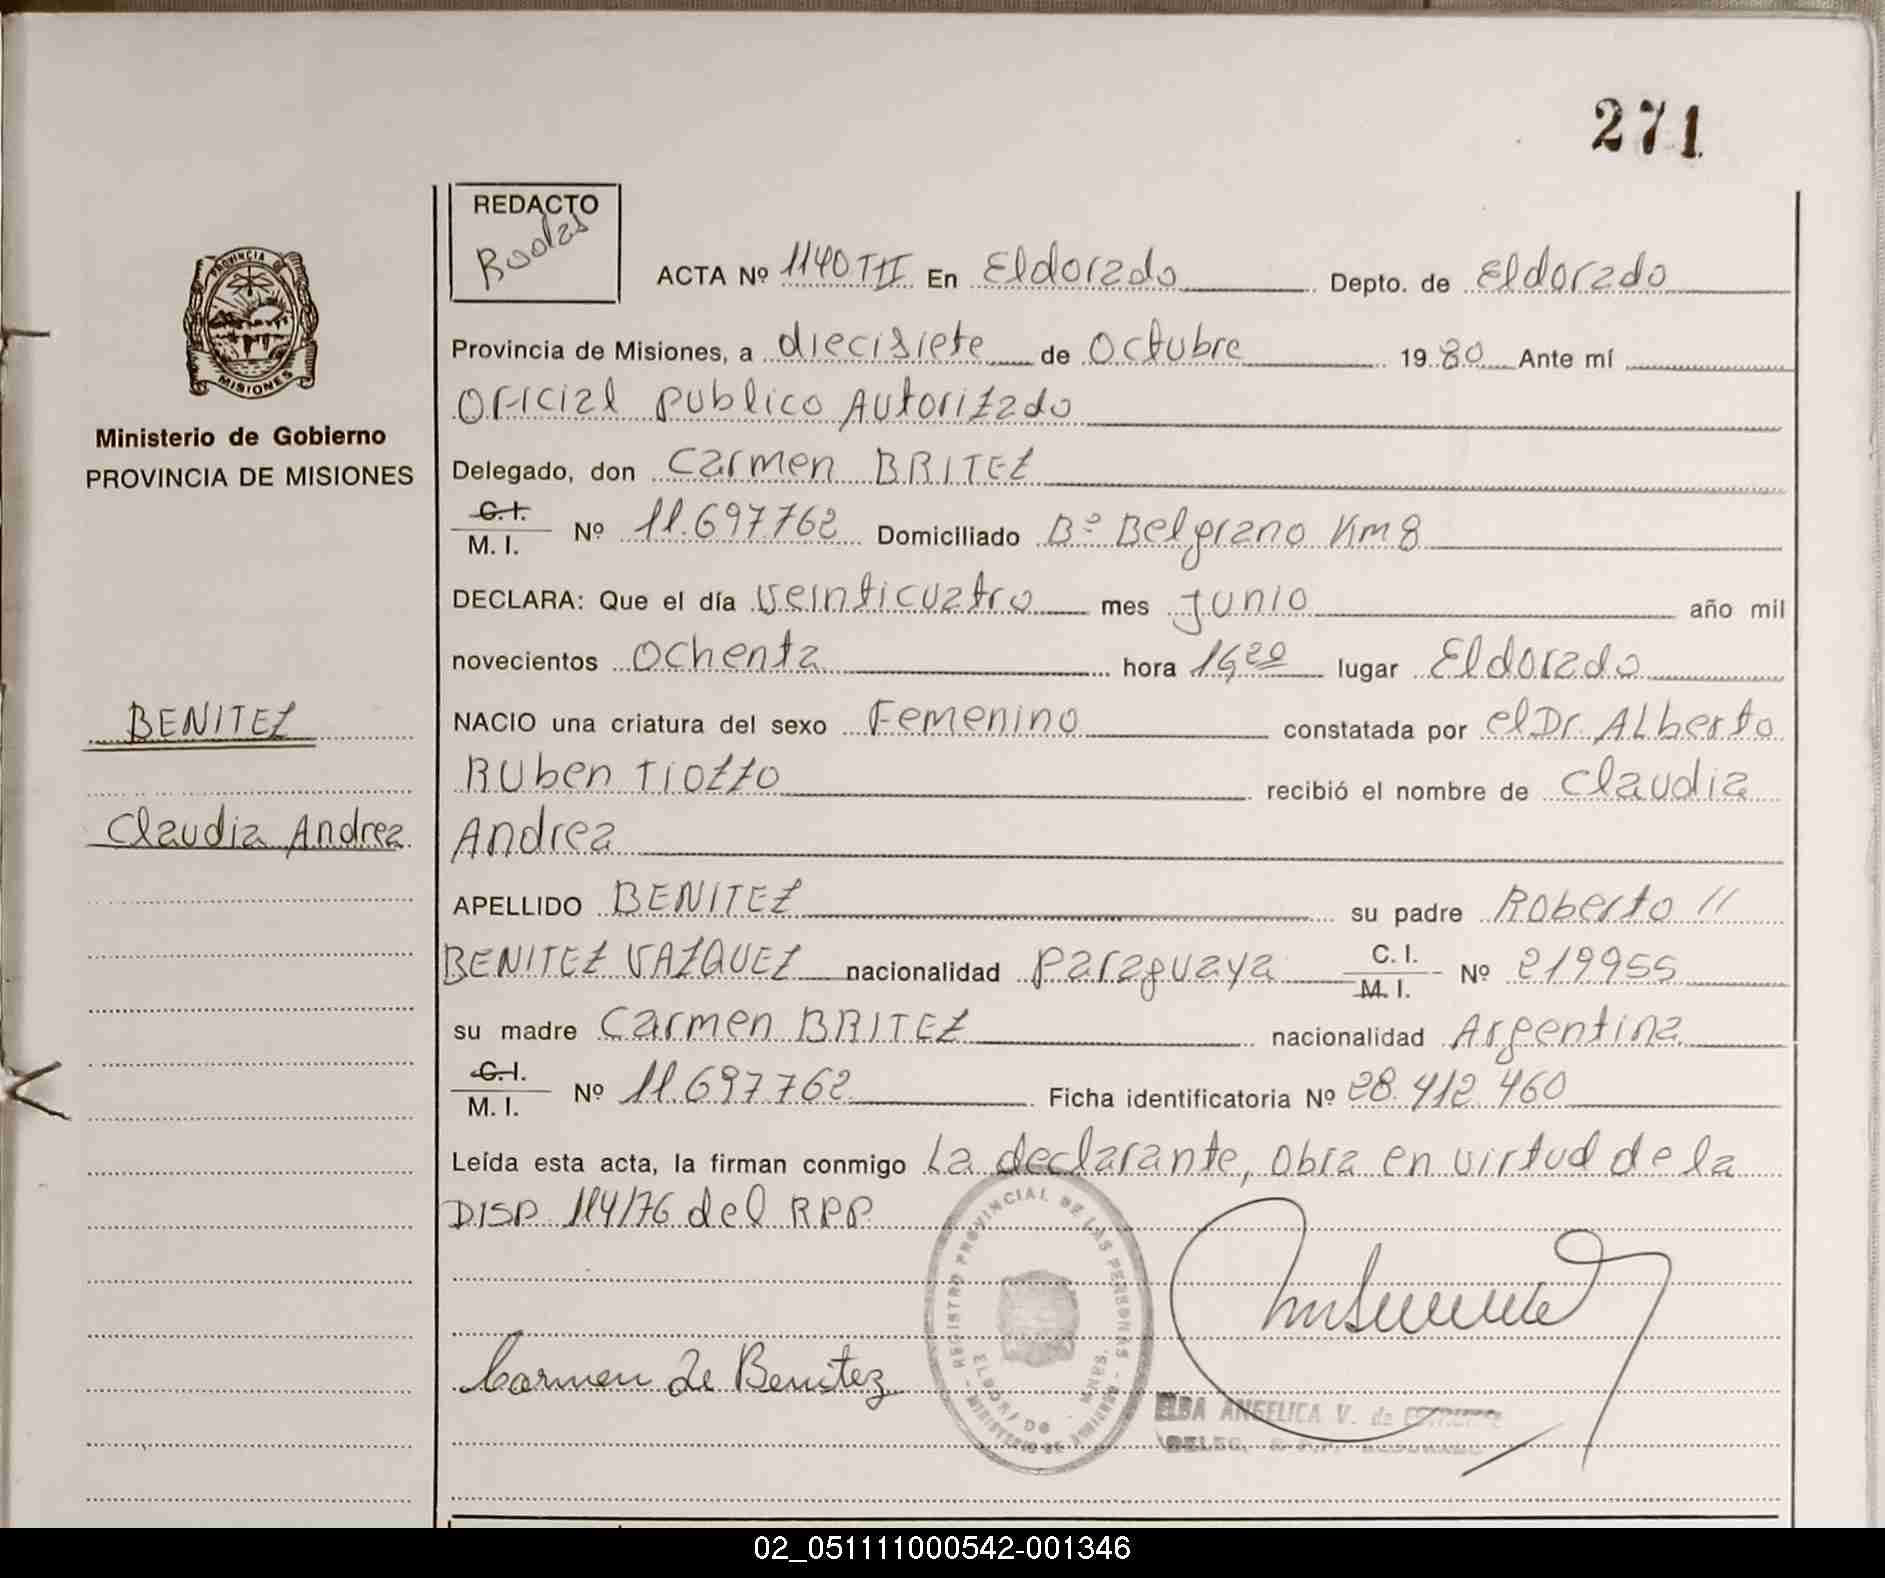 271
REDACTO
PROVINCIA
MISIONES
Ministerio de Gobierno
PROVINCIA DE MISIONES
ACTA Nº 1140 TII En Eldorado Depto. de Eldorado
Provincia de Misiones, a diecisiete de Octubre 1980 Ante mí
Oficial Publico Autorizado
Delegado, don Carmen BRITEZ
C.I. M. I. Nº 11.697.762 Domiciliado Bº Belgrano Km 8
DECLARA: Que el día veinticuatro mes Junio año mil
novecientos ochenta hora lugar Eldorado
BENITEZ
NACIO una criatura del sexo Femenino constatada por el Dr. ALberto
Ruben TIOZZO recibió el nombre de Claudia
Claudia Andrea
Andrea
APELLIDO BENITEZ su padre Roberto //
BENITEZ VAZQUEZ nacionalidad paraguaya C. I. M. I. Nº 219955
su madre Carmen BRITEZ nacionalidad Argentina
C.I. M. I. Nº 11.697.762 Ficha identificatoria Nº 28.412.460
Leída esta acta, la firman conmigo La declarante, obra en virtud de la
DISP. 114/76 del RPP
REGISTRO PROVINCIAL DE LAS PERSONAS
ELDORADO - MNES.
MINISTERIO DE
Carmen de Benitez
ELBA ANGELICA V. de
02_051111000542-001346